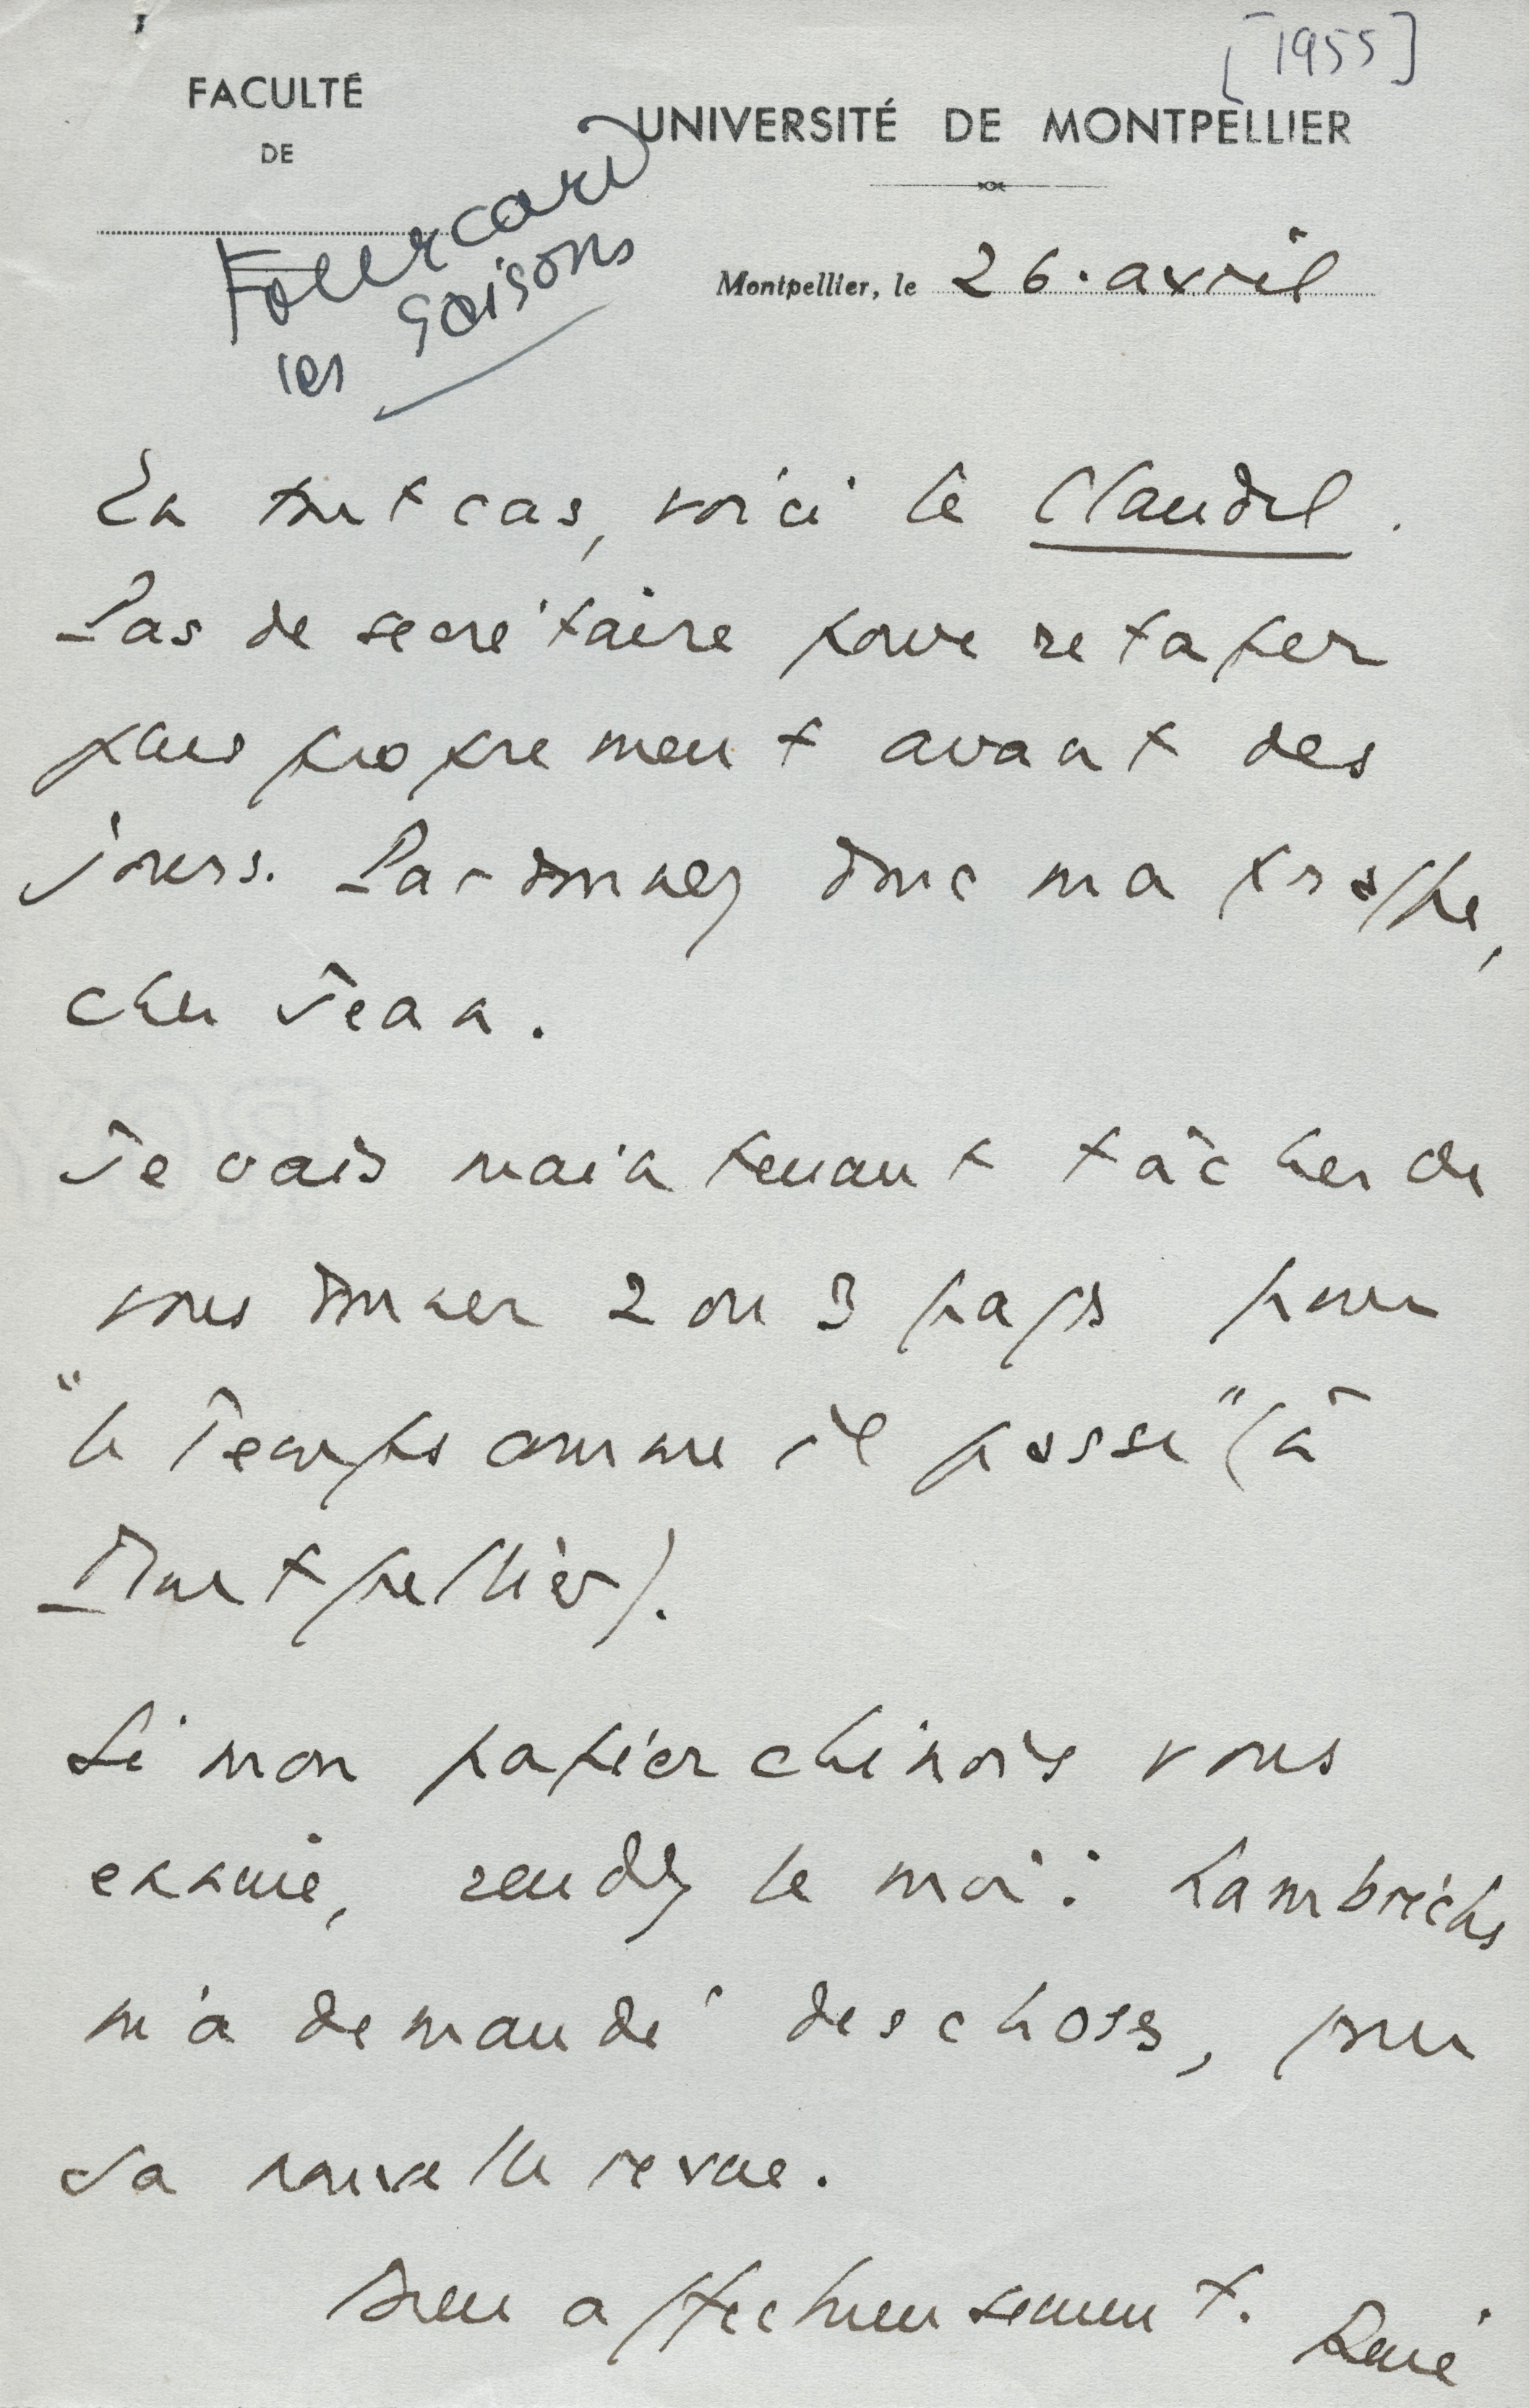 [1955]
FACULTÉ
DE
UNIVERSITÉ DE MONTPELLIER
Fourcard
les saisons
Montpellier, le 26. avril
En tout cas, voici le Claudel.
Pas de secrétaire pour retaper
plus proprement avant des
jours. Pardonnez donc ma frappe,
cher Jean.
Je vais maintenant tâcher de
vous donner 2 ou 3 pages pour
"le Temps comme il passe" (à
Montpellier).
Si mon papier chinois vous
ennuie, rendez le moi : Lambrichs
m'a demandé des choses, pour
sa nouvelle revue.
Bien affectueusement. René